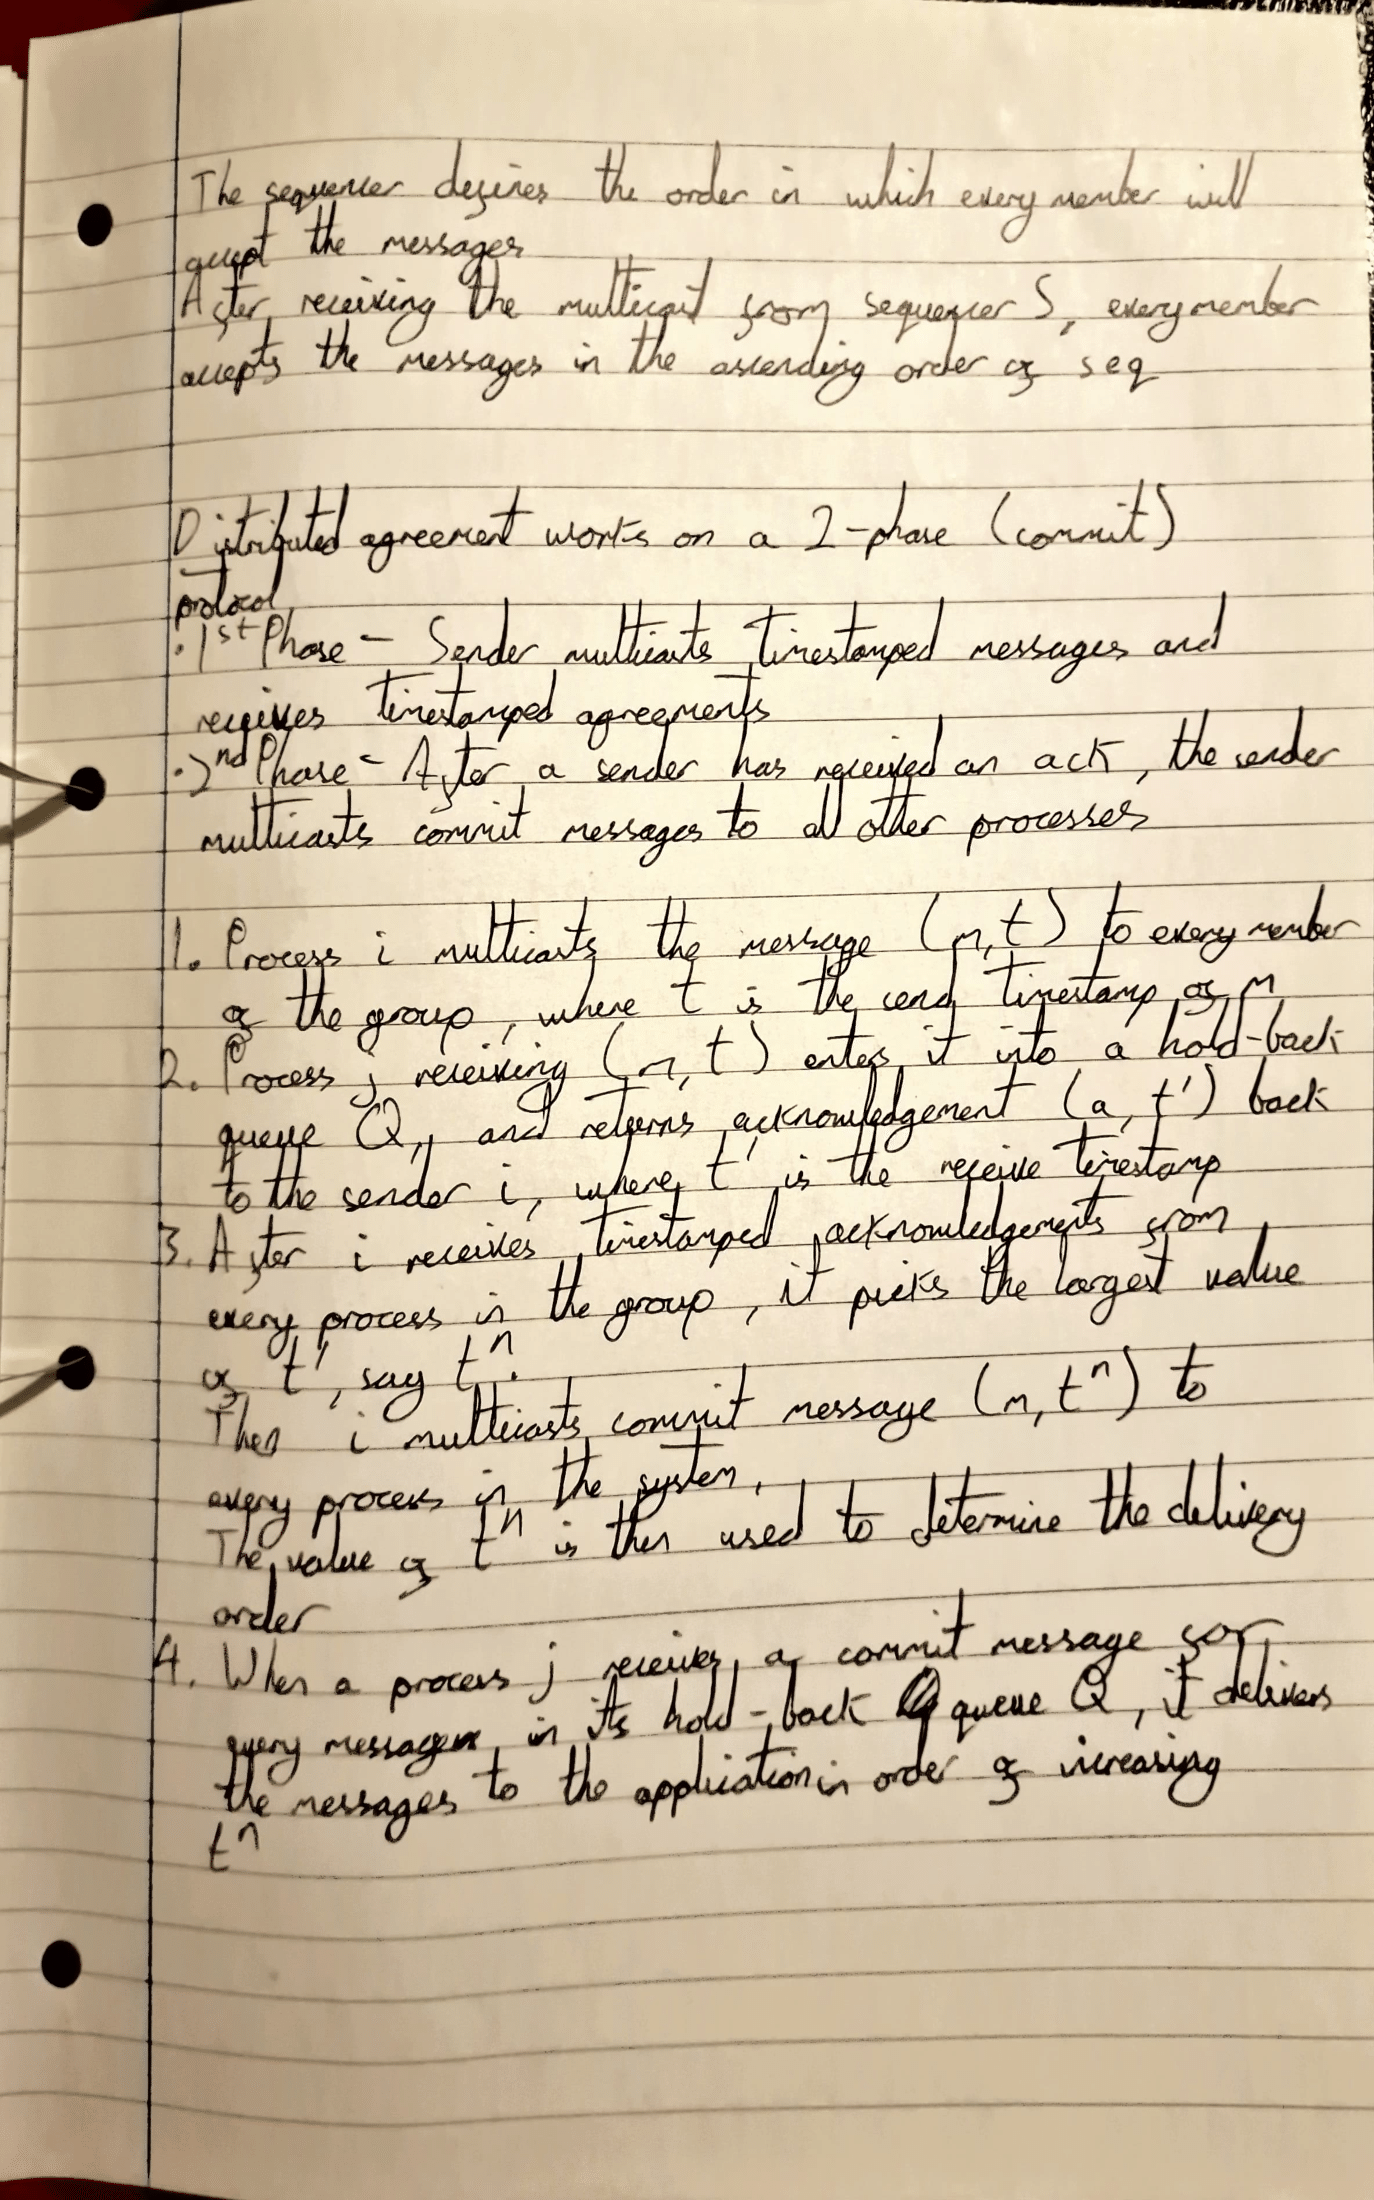 The sequencer defines the order in which every member will
accept the messages
After receiving the multicast from sequencer S, every member
accepts the messages in the ascending order of seq
Distributed agreement works on a 2-phase (commit)
protocol
· 1st Phase - Sender multicasts timestamped messages and
receives timestamped agreements
· 2nd Phase - After a sender has received an ack, the sender
multicasts commit messages to all other processes
1. Process i multicasts the message (m, t) to every member
of the group, where t is the send timestamp of m
2. Process j receiving (m, t) enters it into a hold-back
queue Q, and returns acknowledgement (a, t') back
to the sender i, where t' is the receive timestamp
3. After i receives timestamped acknowledgements from
every process in the group, it picks the largest value
of t', say tⁿ.
Then i multicasts commit message (m, tⁿ) to
every process in the system.
The value of tⁿ is then used to determine the delivery
order
4. When a process j receives a commit message for
every message in its hold-back queue Q, it delivers
the messages to the application in order of increasing
tⁿ